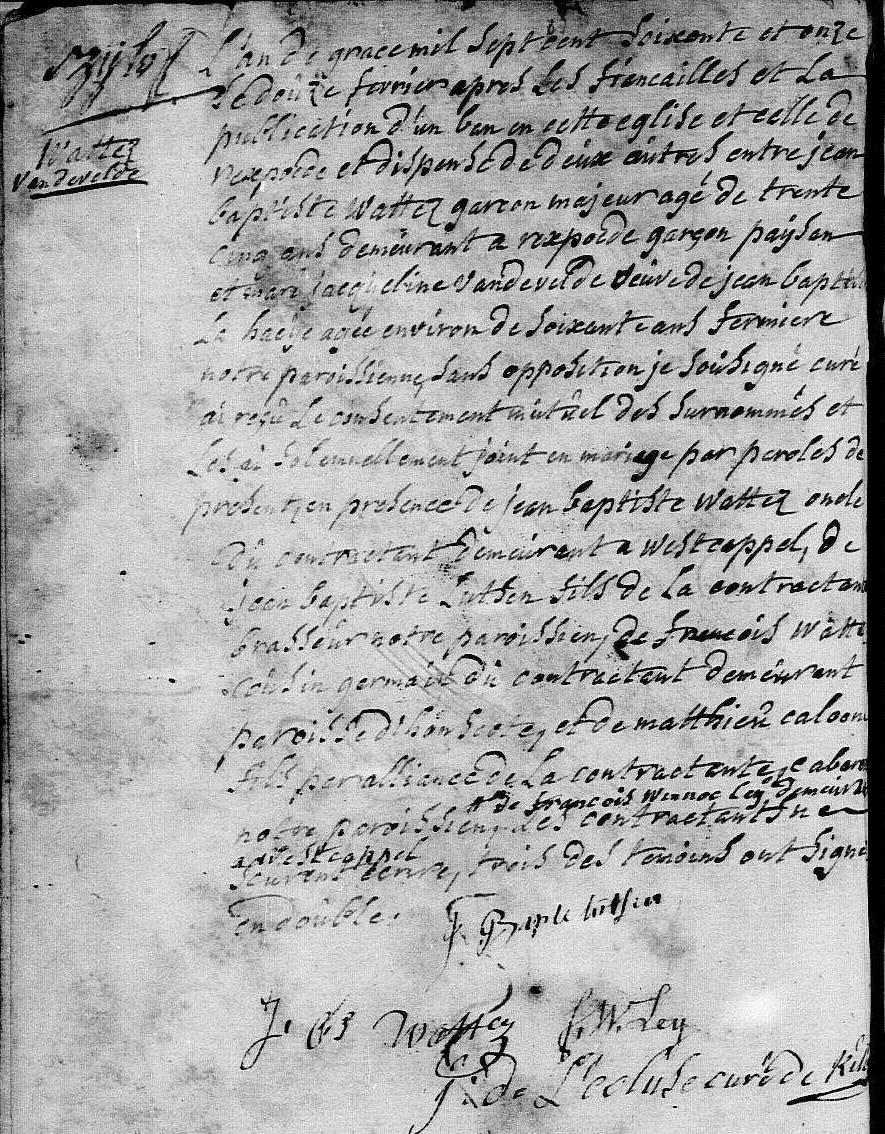 Wattez
Vandevelde
L'an de grace mil Septcent Soixante et onze
Le douze fevrier apres Les fiencailles et La
publication d'un ban en cette eglise et celle de
rexpoede et dispense de deux autres entre jean
baptiste Wattez garçon majeur agé de trente
cinq ans demeurant a rexpoede garçon paysan
et mari jacqueline Vandevelde veuve de jean baptist
La haeye agée environ de Soixante ans fermiere
notre paroissienne, Sans opposition je Sousigné curé
ai reçu Le consentement mutuel des Surnommés et
Les ai Solennellement joint en mariage par paroles de
present, en presence de jean baptiste Wattez oncle
du contractant demeurant a Westcappel, de
jean baptiste Luthen fils de La contractant
brasseur notre paroissien, de francois Watte
cousin germain du contractant demeurant
paroisse d'honscote, et de matthieu caloone
fils par alliance de La contractante, cabare
et de francois Winnoc Ley demeurant
notre paroissien, Les contractants ne
a Westcappel
Scavent ecrire, trois des temoins ont Signé
en double.
J Bapte luthen
J. Bs Wattez
f. W. Ley
J: de L'ecluse curé de Kill